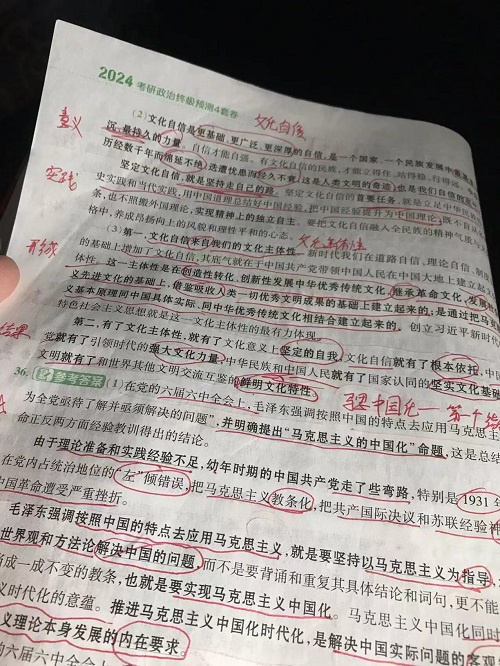 2024 考研政治终极预测4套卷
文化自信
(2)文化自信是更基础、更广泛、更深厚的自信,是一个国家、一个民族发展中
意义
沉、最持久的力量。自信才能自强。有文化自信的民族,才能立得住、站得稳、行得远。
历经数千年而绵延不绝、迭遭忧患而经久不衰,这是人类文明的奇迹,也是我们自信的
实践
坚定文化自信,就是坚持走自己的路。坚定文化自信的首要任务,就是立足中华民
史实践和当代实践,用中国道理总结好中国经验,把中国经验提升为中国理论,既不盲从
条,也不照搬外国理论,实现精神上的独立自主。要把文化自信融入全民族的精神气质与
格中,养成昂扬向上的风貌和理性平和的心态。
(3)第一,文化自信来自我们的文化主体性。新时代我们在道路自信、理论自信、制
形成
的基础上增加了文化自信,其底气就在于中国共产党带领中国人民在中国大地上建立起
体性。这一主体性是在创造性转化、创新性发展中华优秀传统文化,继承革命文化,发展
义先进文化的基础上,借鉴吸收人类一切优秀文明成果的基础上建立起来的;是通过把马
义基本原理同中国具体实际、同中华优秀传统文化相结合建立起来的。创立习近平新时代
特色社会主义思想就是这一文化主体性的最有力体现。
第二,有了文化主体性,就有了文化意义上坚定的自我,文化自信就有了根本依托,中国
党就有了引领时代的强大文化力量,中华民族和中国人民就有了国家认同的坚实文化基础
文明就有了和世界其他文明交流互鉴的鲜明文化特性。
36. 参考答案 (1)在党的六届六中全会上,毛泽东强调按照中国的特点去应用马克思
为全党亟待了解并亟须解决的问题”,并明确提出“马克思主义的中国化”命题,这是总结
命正反两方面经验教训得出的结论。
由于理论准备和实践经验不足,幼年时期的中国共产党走了些弯路,特别是1931年
在党内占统治地位的“左”倾错误,把马克思主义教条化,把共产国际决议和苏联经验神
中国革命遭受严重挫折。
毛泽东强调按照中国的特点去应用马克思主义,就是要坚持以马克思主义为指导
世界观和方法论解决中国的问题,而不是要背诵和重复其具体结论和词句,更不能
当成一成不变的教条,也就是要实现马克思主义中国化。马克思主义中国化同时
义时代化的意蕴。推进马克思主义中国化时代化,是解决中国实际问题的客观
义理论本身发展的内在要求。
的六届六中全会上